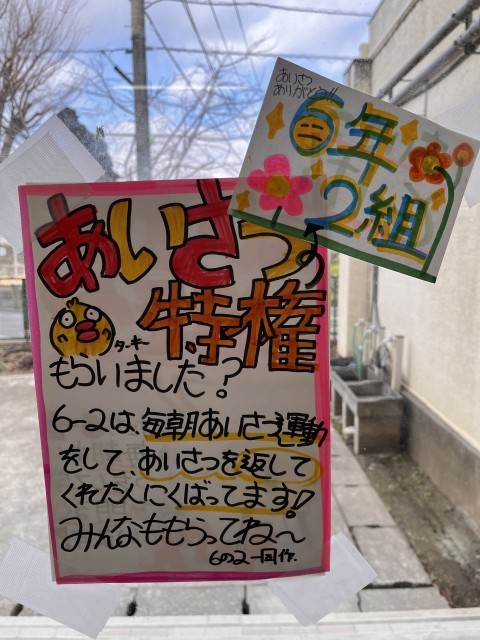 あいさつ
ありがとう!!
6年
2組
あいさつの
特権
ターキー
もらいました?
6-2は、毎朝あいさつ運動
をして、あいさつを返して
くれた人にくばってます!
みんなももらってね〜
6の2一同作.